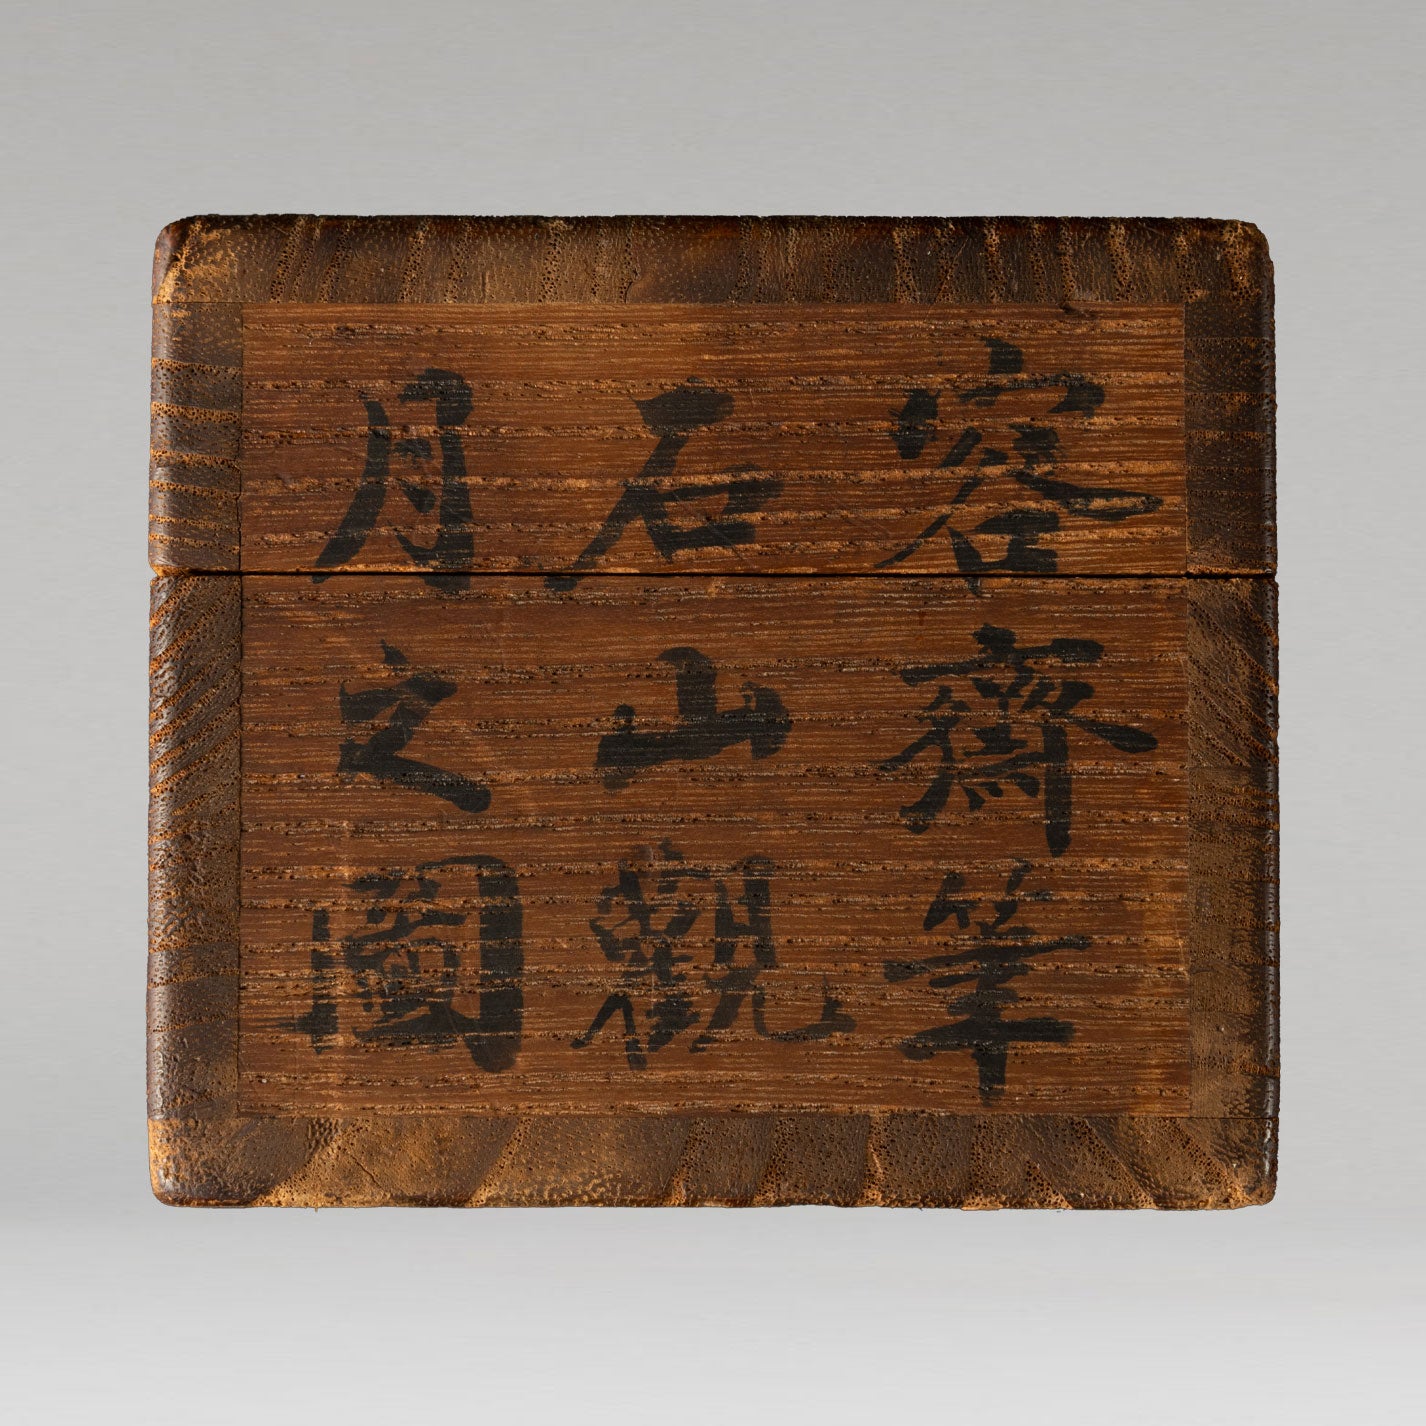 容齋筆
石山觀
月之圖